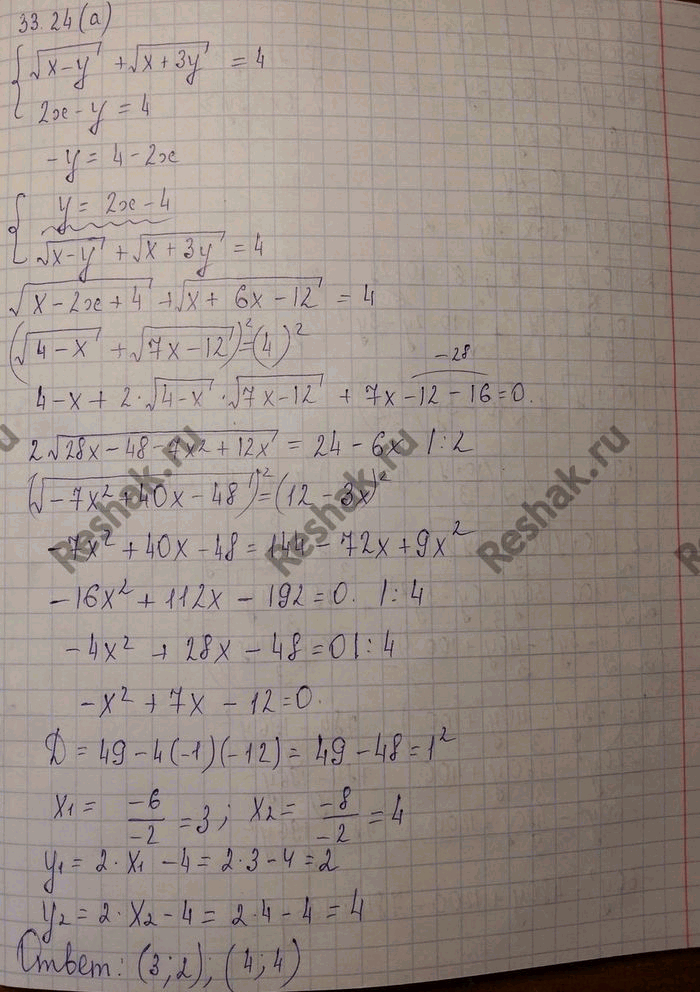 33.24(а)
√x-y + √x+3y = 4
2x-y=4
-y=4-2x
y=2x-4
√x-y + √x+3y = 4
√x-2x+4 + √x+6x-12 = 4
(√4-x + √7x-12)²=(4)²
-28
4-x+2·√4-x·√7x-12 + 7x-12-16=0.
2√28x-48-7x²+12x = 24-6x |:2
(√-7x²+40x-48)²=(12-3x)²
-7x²+40x-48=144-72x+9x²
-16x²+112x-192=0. |:4
-4x²+28x-48=0|:4
-x²+7x-12=0.
D=49-4(-1)(-12)=49-48=1²
x₁=-6/-2=3; x₂=-8/-2=4
y₁=2·x₁-4=2·3-4=2
y₂=2·x₂-4=2·4-4=4
Ответ: (3;2); (4;4)
Reshak.ru
Reshak.ru
Reshak.ru